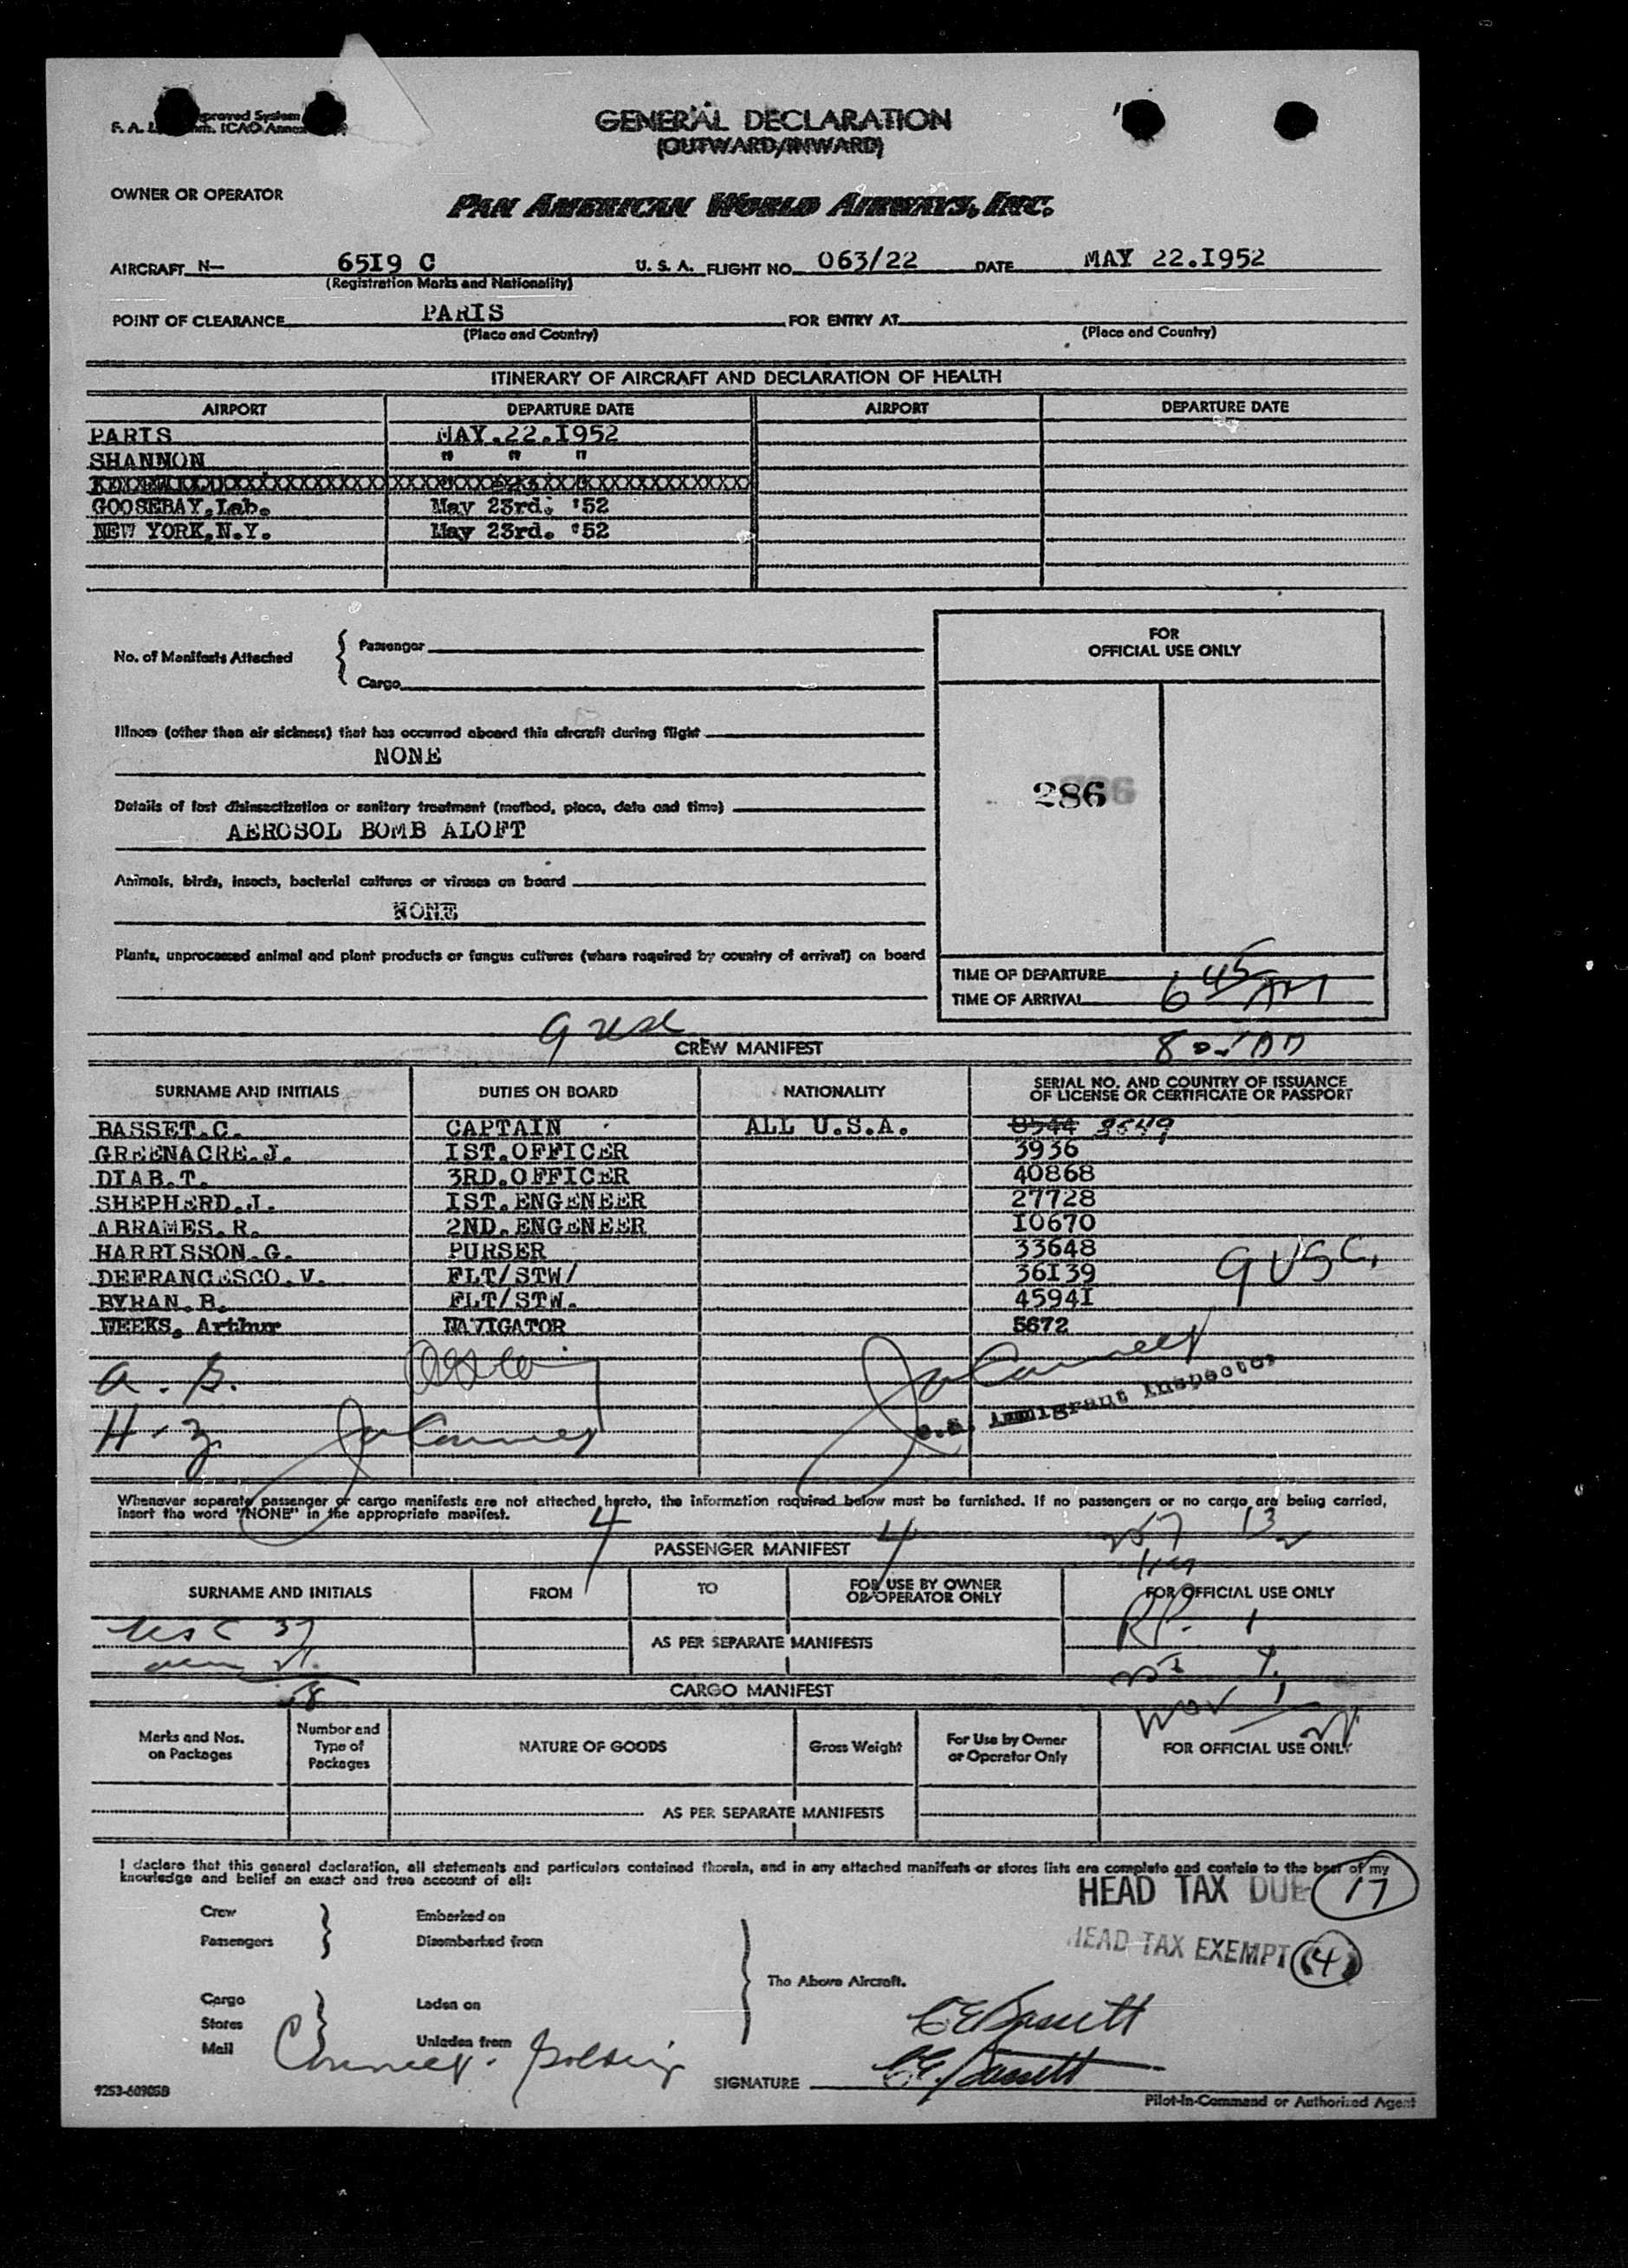 GENERAL DECLARATION
(OUTWARD/INWARD)
OWNER OR OPERATOR
PAN AMERICAN WORLD AIRWAYS, INC.
AIRCRAFT N— 65I9 C U. S. A. FLIGHT NO. 063/22 DATE MAY 22.I952
(Registration Marks and Nationality)
POINT OF CLEARANCE PARIS FOR ENTRY AT
(Place and Country) (Place and Country)
ITINERARY OF AIRCRAFT AND DECLARATION OF HEALTH
AIRPORT DEPARTURE DATE AIRPORT DEPARTURE DATE
PARIS MAY.22.I952
SHANNON " " "
GOOSEBAY,Lab. May 23rd. '52
NEW YORK,N.Y. May 23rd. '52
FOR
OFFICIAL USE ONLY
No. of Manifests Attached { Passenger
Cargo
Illness (other than air sickness) that has occurred aboard this aircraft during flight
NONE
286
Details of last disinsectization or sanitary treatment (method, place, date and time)
AEROSOL BOMB ALOFT
Animals, birds, insects, bacterial cultures or viruses on board
NONE
Plants, unprocessed animal and plant products or fungus cultures (where required by country of arrival) on board
TIME OF DEPARTURE
TIME OF ARRIVAL 6 45 AM
CREW MANIFEST
SURNAME AND INITIALS DUTIES ON BOARD NATIONALITY SERIAL NO. AND COUNTRY OF ISSUANCE
OF LICENSE OR CERTIFICATE OR PASSPORT
BASSET.C. CAPTAIN ALL U.S.A. 8544
GREENACRE.J. IST.OFFICER 3936
DIAB.T. 3RD.OFFICER 40868
SHEPHERD.J. IST.ENGENEER 27728
ABRAMES.R. 2ND.ENGENEER I0670
HARRISSON.G. PURSER 33648
DEFRANCESCO.V. FLT/STW/ 36I39
BYRAN.B. FLT/STW. 4594I
WEEKS, Arthur NAVIGATOR 5672
9 USC,
U.S. Immigrant Inspector
Whenever separate passenger or cargo manifests are not attached hereto, the information required below must be furnished. If no passengers or no cargo are being carried,
insert the word "NONE" in the appropriate manifest.
4 4
PASSENGER MANIFEST
SURNAME AND INITIALS FROM TO FOR USE BY OWNER
OR OPERATOR ONLY FOR OFFICIAL USE ONLY
USC 37
AS PER SEPARATE MANIFESTS
CARGO MANIFEST
Marks and Nos.
on Packages
Number and
Type of
Packages
NATURE OF GOODS Gross Weight
For Use by Owner
or Operator Only
FOR OFFICIAL USE ONLY
AS PER SEPARATE MANIFESTS
I declare that this general declaration, all statements and particulars contained therein, and in any attached manifests or stores lists are complete and contain to the best of my
knowledge and belief an exact and true account of all:
HEAD TAX DUE 17
Crew Embarked on
Passengers Disembarked from
HEAD TAX EXEMPT 4
The Above Aircraft.
Cargo Laden on
Stores
Mail Unladen from
CE Bassett
SIGNATURE CE Bassett
9253-60905B Pilot-in-Command or Authorized Agent